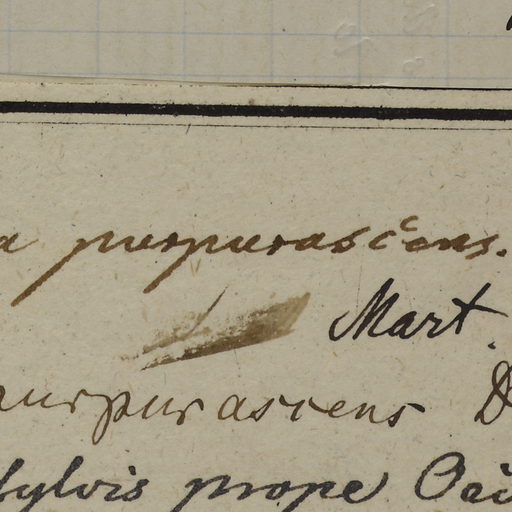 a purpurascens.
Mart.
purpurascens D
sylvis prope